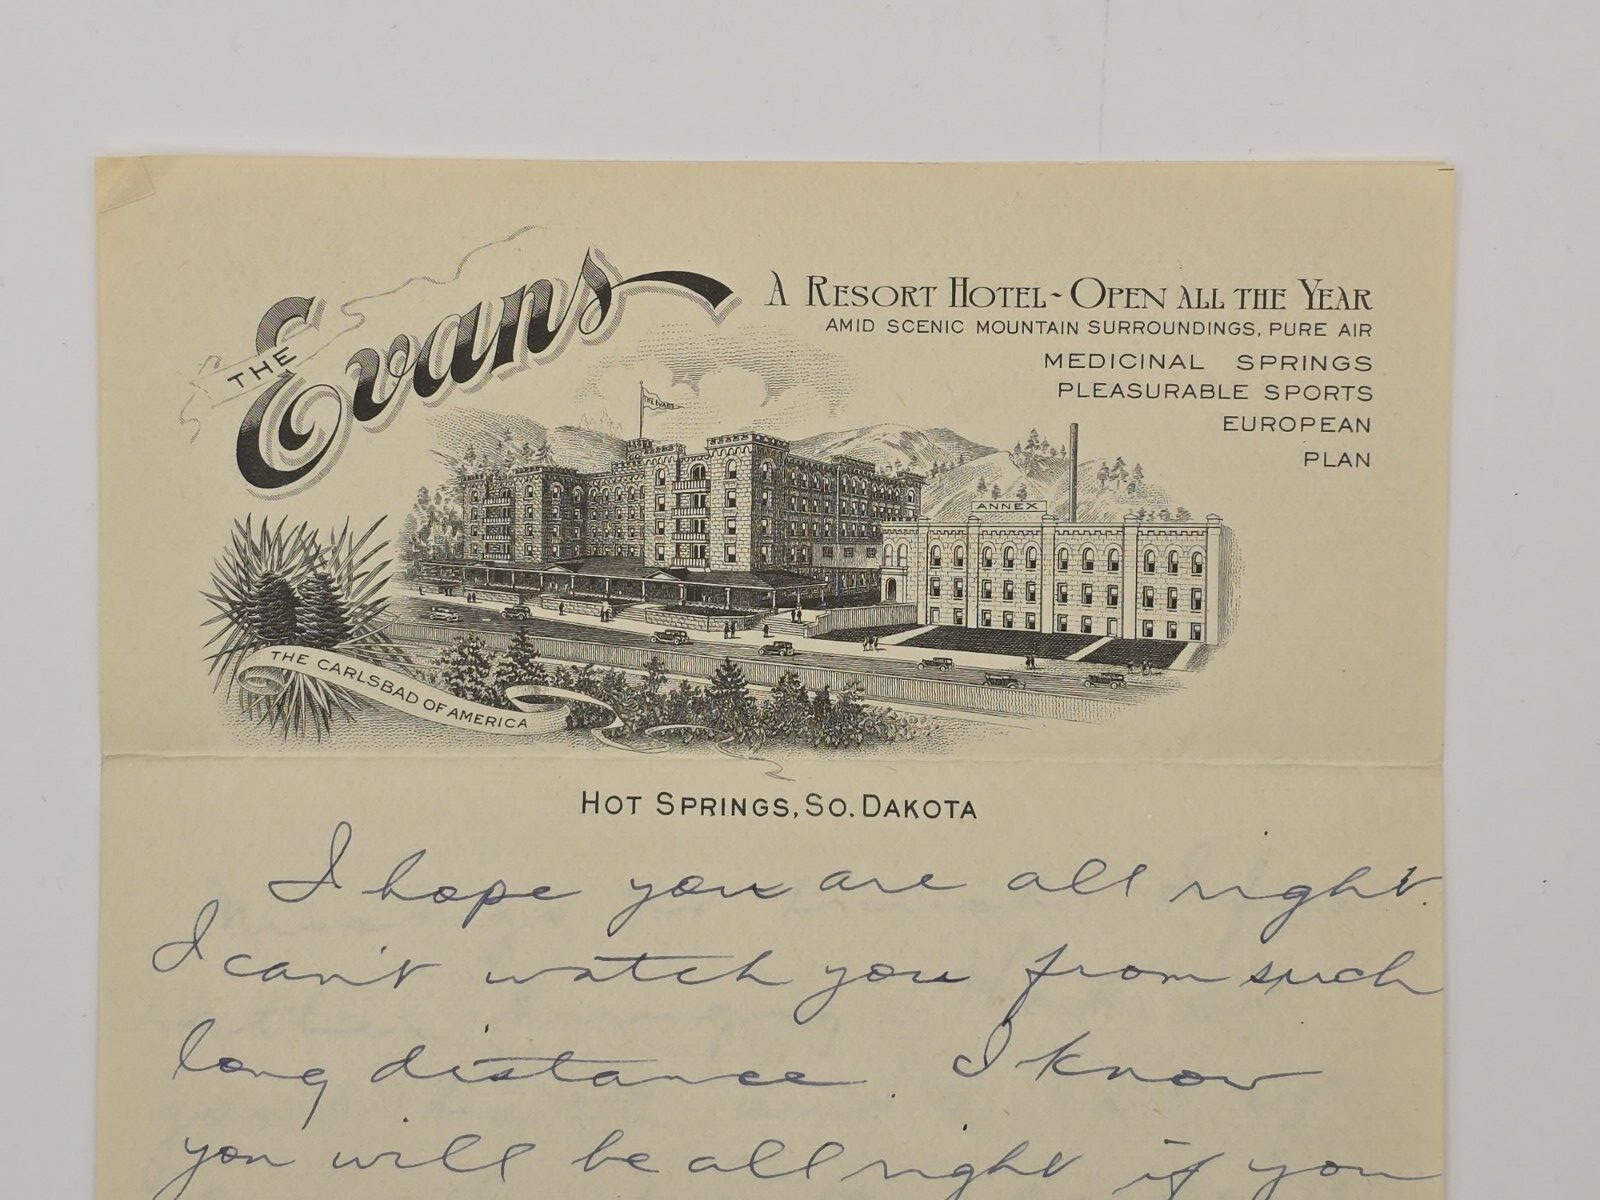 THE Evans
A RESORT HOTEL - OPEN ALL THE YEAR
AMID SCENIC MOUNTAIN SURROUNDINGS, PURE AIR
MEDICINAL SPRINGS
PLEASURABLE SPORTS
EUROPEAN
PLAN
THE EVANS
ANNEX
THE CARLSBAD OF AMERICA
HOT SPRINGS, SO. DAKOTA
I hope you are all right.
I can't watch you from such
long distance. I know
you will be all right if you